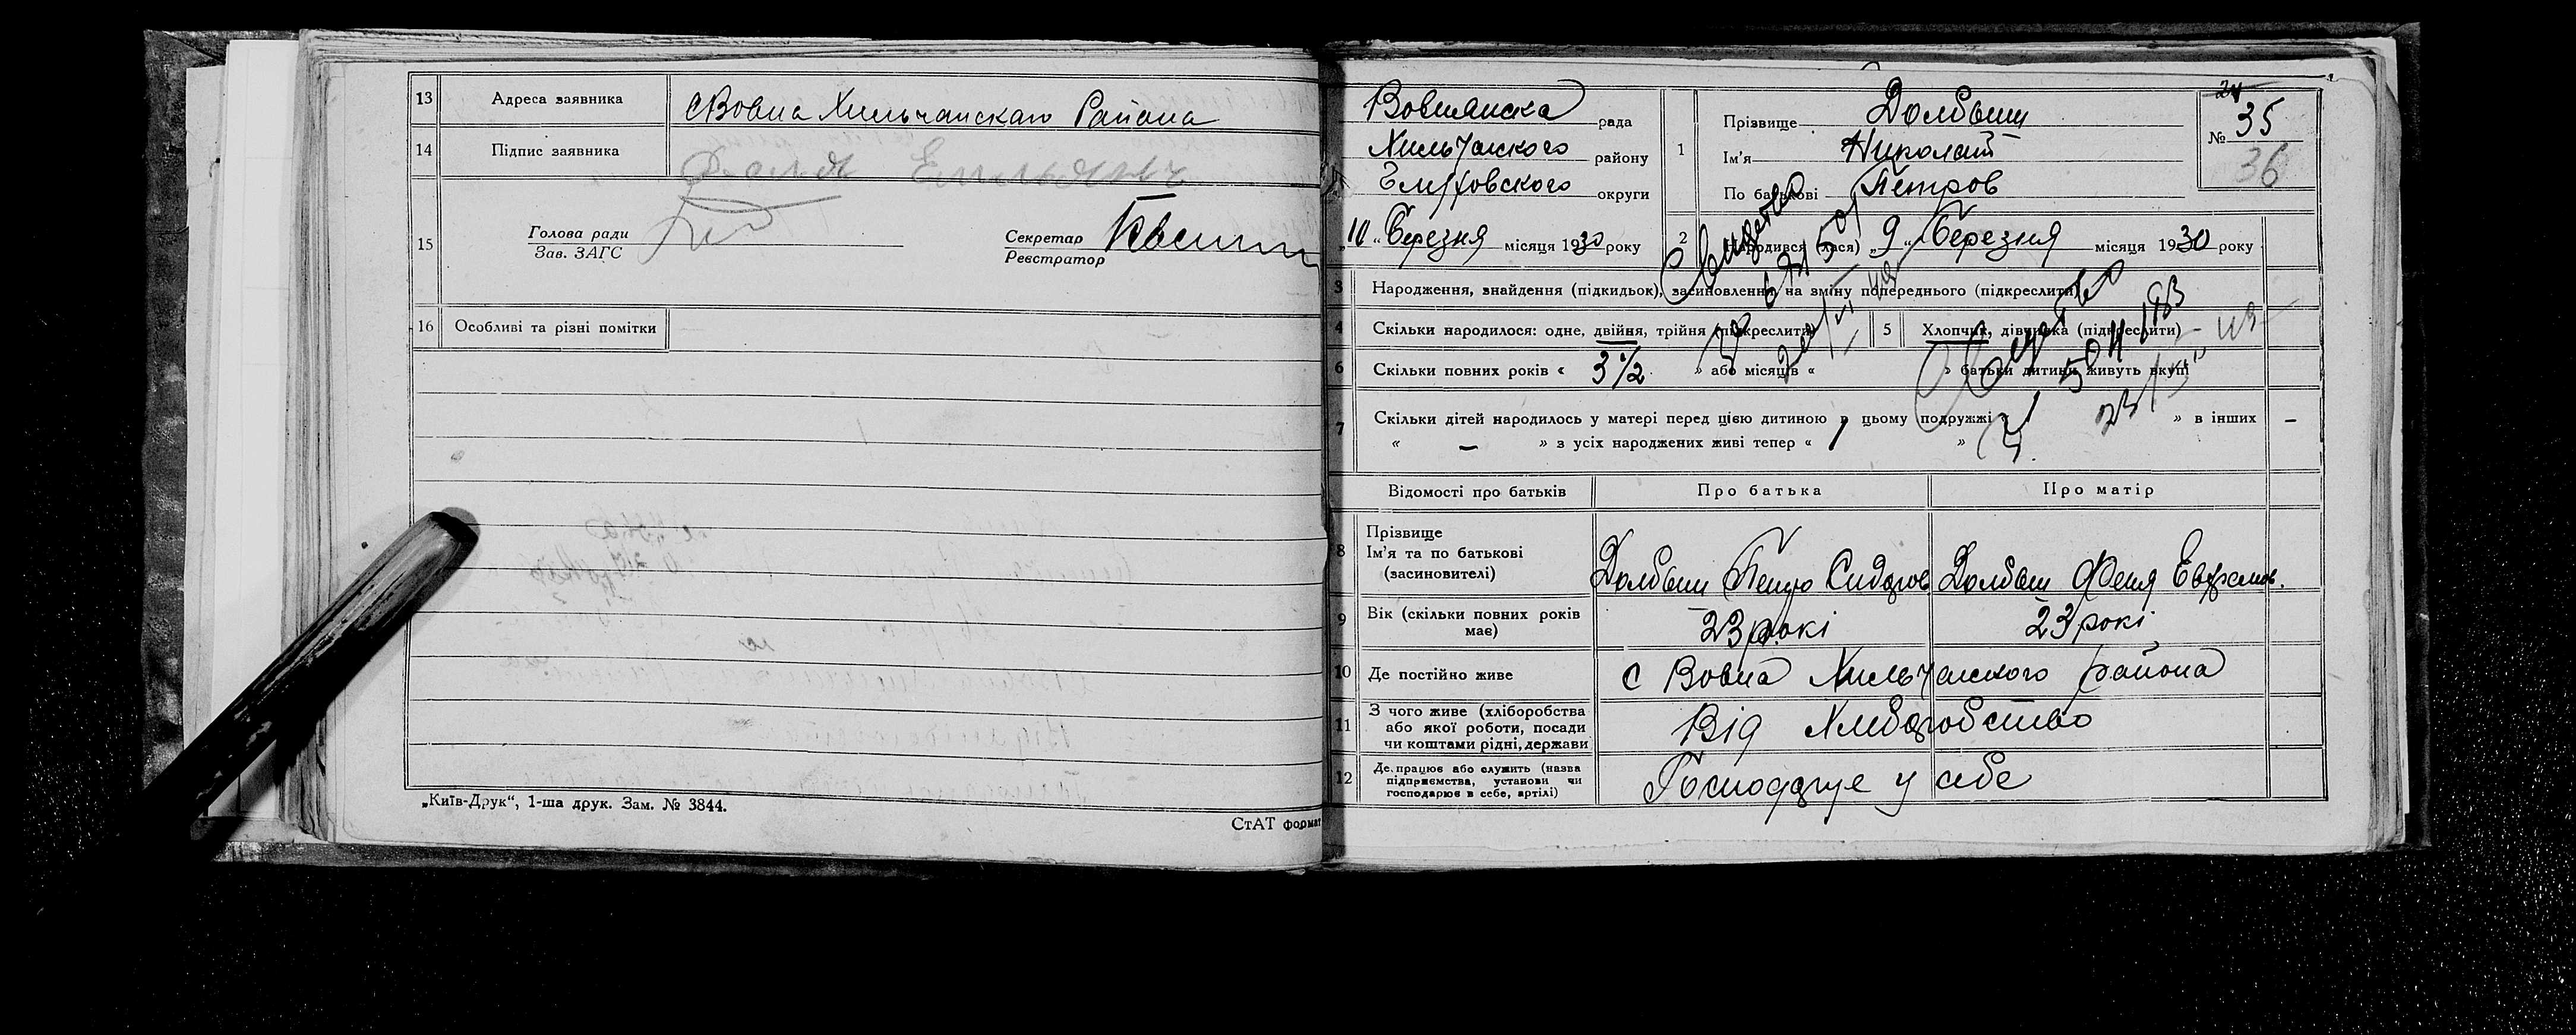 13 Адреса заявника с Вовна Хильчанскаго Района
14 Підпис заявника
15 Голова ради
Зав. ЗАГС
Секретар
Реєстратор
16 Особливі та різні помітки
„Київ-Друк“, 1-ша друк. Зам. № 3844.
СтАТ формат
Вовнянска рада
Хильчаского району
Глуховского округи
„10“ Березня місяця 1930 року
1 Прізвище Долбыш
Ім'я Николай
По батькові Петров
24
№ 35
36
2 Народився (лася) „9“ Березня місяця 1930 року
3 Народження, знайдення (підкидьок), засиновлення, на зміну попереднього (підкреслити)
4 Скільки народилося: одне, двійня, трійня (підкреслити) 5 Хлопчик, дівчинка (підкреслити)
6 Скільки повних років « 3 1/2 » або місяців « » батьки дитини живуть вкупі
7 Скільки дітей народилось у матері перед цією дитиною в цьому подружжі « » в інших –
« – » з усіх народжених живі тепер « »
Відомості про батьків Про батька Про матір
8 Прізвище
Ім'я та по батькові
(засиновителі)
Долбыш Петро Сидоров Долбыш Феня Евфремов.
9 Вік (скільки повних років
має)
23 рокі 23 рокі
10 Де постійно живе с Вовна Хильчаского района
11 З чого живе (хліборобства
або якої роботи, посади
чи коштами рідні, держави
Від Хлеборобство
12 Де працює або служить (назва
підприємства, установи чи
господарює в себе, артілі)
Господарує у себе